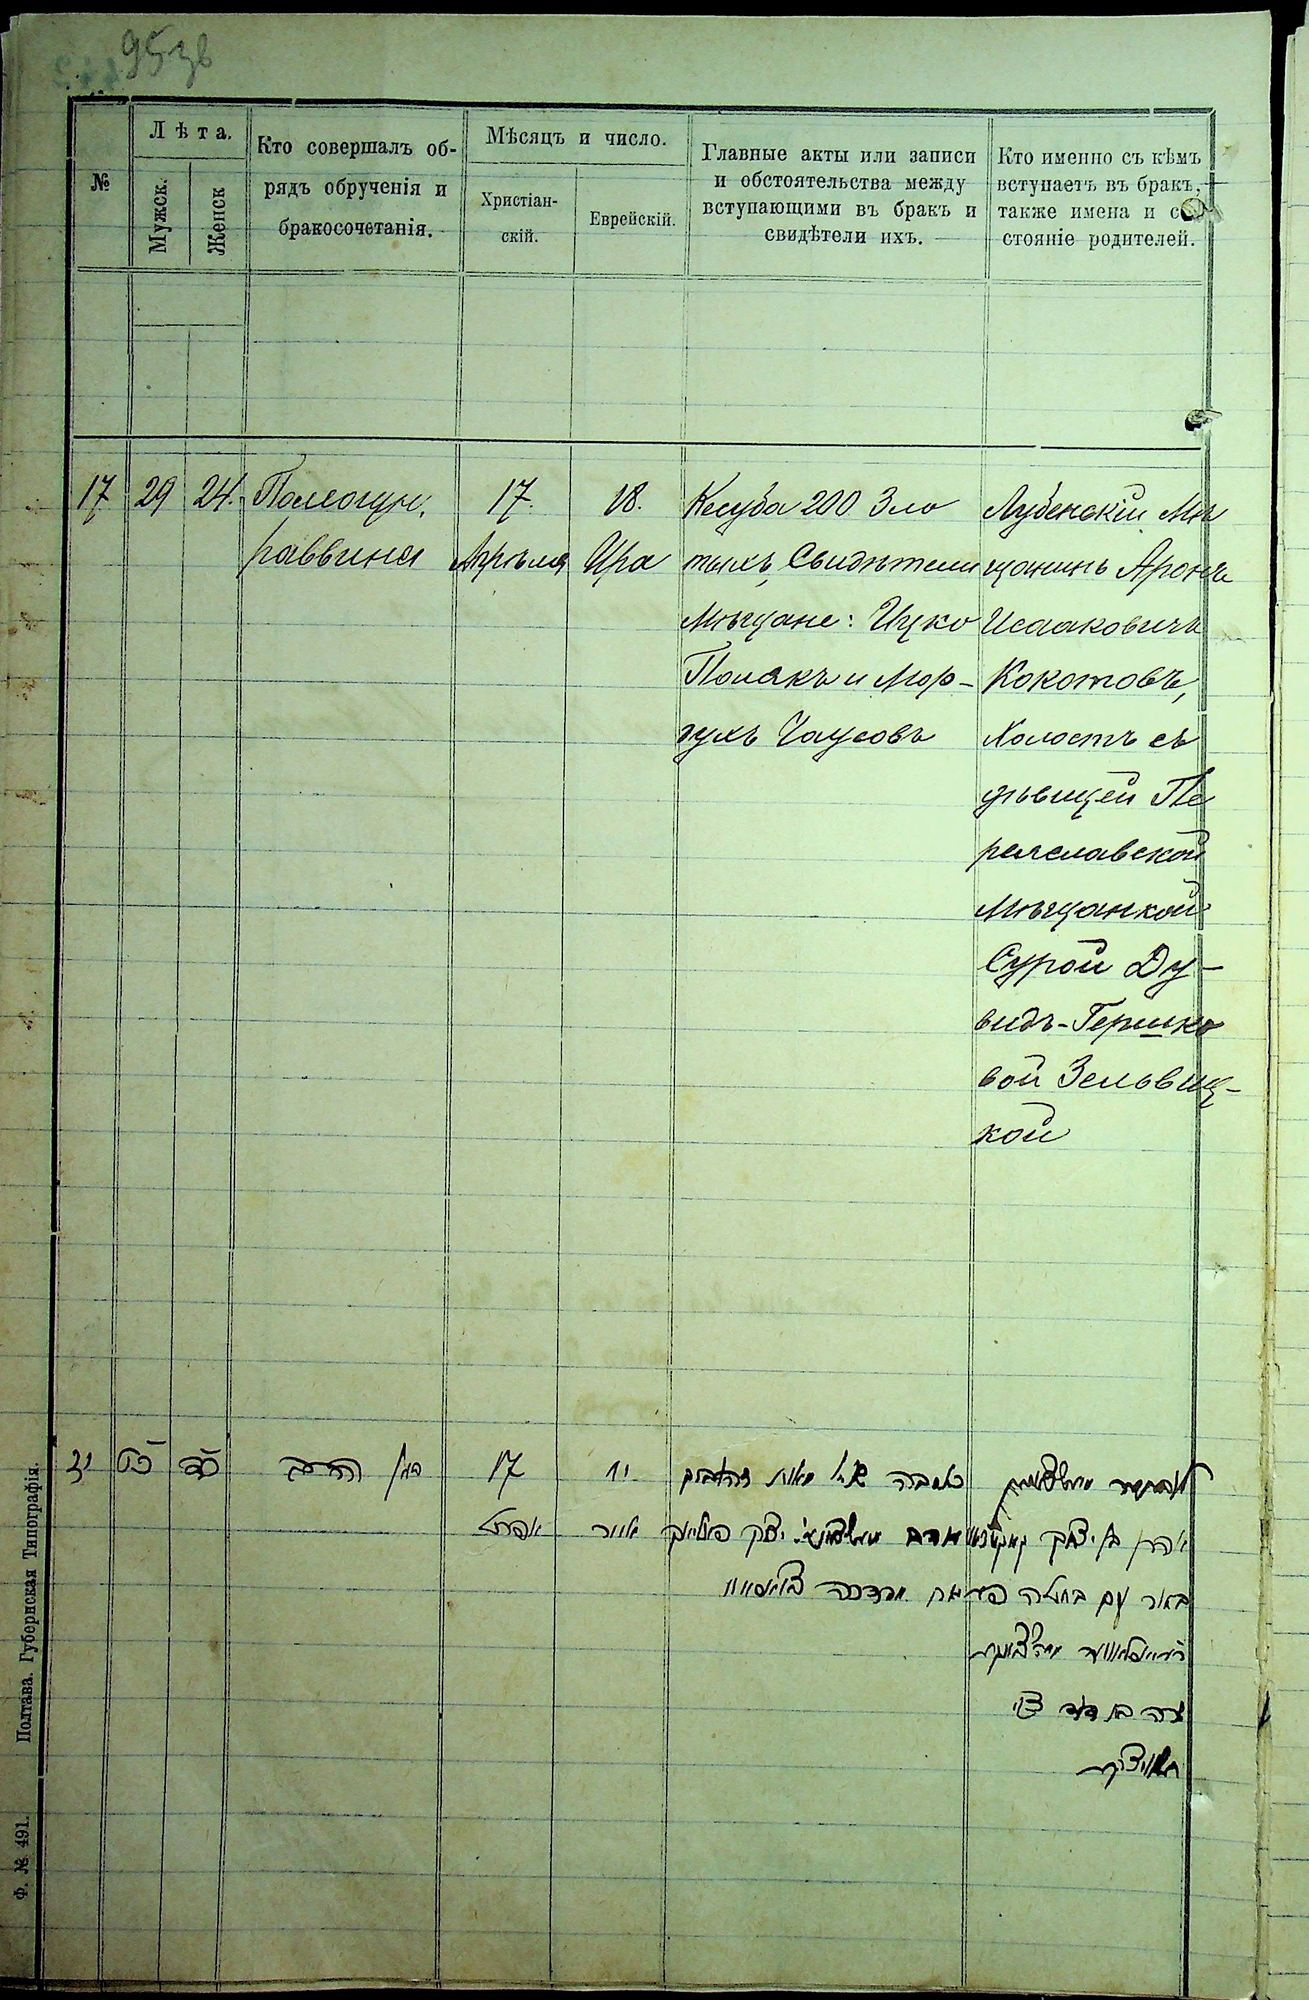 95 зв
№
Лѣта.
Мужск.
Женск
Кто совершалъ об-
рядъ обрученія и
бракосочетанія.
Мѣсяцъ и число.
Христіан-
скій.
Еврейскій.
Главные акты или записи
и обстоятельства между
вступающими въ бракъ и
свидѣтели ихъ.
Кто именно съ кѣмъ
вступаетъ въ бракъ,
также имена и со
стояніе родителей.
17
29
24.
Помощн.
раввина
17.
Апрѣля
18.
Іра
Кесуба 200 Зло
тыхъ, Свидѣтели
Мѣщане: Ицко
Полякъ и Мор-
духъ Чаусовъ
Лубенскій Мѣ
щанинъ Аронъ
Исааковичъ
Кокотовъ,
Холостъ съ
дѣвицей Пе
реяславской
Мѣщанкой
Сурой Ду-
видъ-Гершко
вой Зельвиц-
кой
יז
כט
כד
17
אפריל
יח
אייר
כתובה מאות זהובים
יצק פאליאק
מרדכה
אהרן בן יצחק
בחור עם בתולה
שרה בת דוד צבי
Полтава. Губернская Типографія.
Ф. № 491.